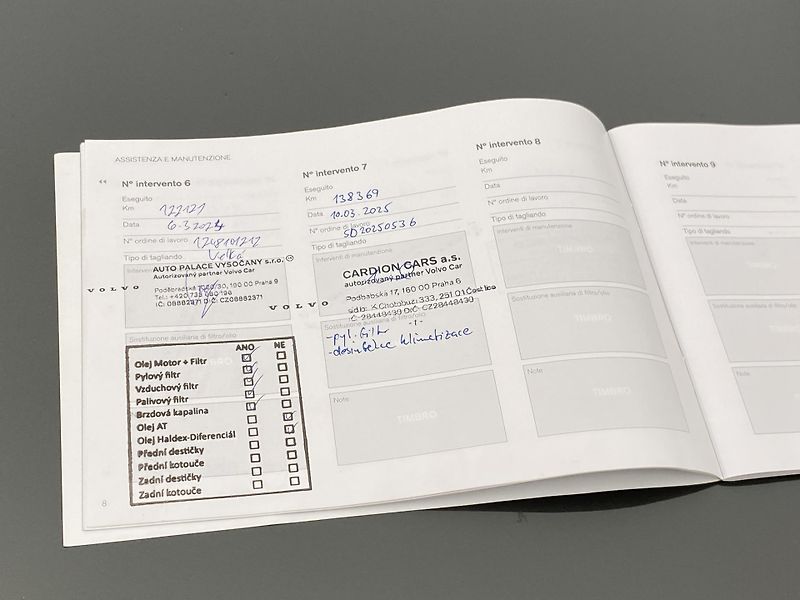 ASSISTENZA E MANUTENZIONE
N° intervento 6
Eseguito
Km 122121
Data 6.3.2024
N° ordine di lavoro 1248101212
Tipo di tagliando Velká
AUTO PALACE VYSOČANY s.r.o.
Autorizovaný partner Volvo Car
VOLVO
190 00 Praha 9
Sostituzione ausiliaria di filtro/olio
ANO NE
Olej Motor + Filtr
Pylový filtr
Vzduchový filtr
Palivový filtr
Brzdová kapalina
Olej AT
Olej Haldex-Diferenciál
Přední destičky
Přední kotouče
Zadní destičky
Zadní kotouče
8
N° intervento 7
Eseguito
Km 138369
Data 10.03.2025
N° ordine di lavoro SD20250536
Tipo di tagliando
Interventi di manutenzione
CARDION CARS a.s.
autorizovaný partner Volvo Car
VOLVO
Podbabská 17, 160 00 Praha 6
sídlo: K Chotobuzi 333, 251 01 Čestlice
IČ: 28448430 DIČ: CZ28448430
-1-
Sostituzione ausiliaria di filtro/olio
-pyl. filtr
-desinfekce klimatizace
Note
N° intervento 8
Eseguito
Km
Data
N° ordine di lavoro
Tipo di tagliando
Interventi di manutenzione
Sostituzione ausiliaria di filtro/olio
Note
N° intervento 9
Eseguito
Km
Data
N° ordine di lavoro
Tipo di tagliando
Interventi di manutenzione
Sostituzione ausiliaria di filtro/olio
Note